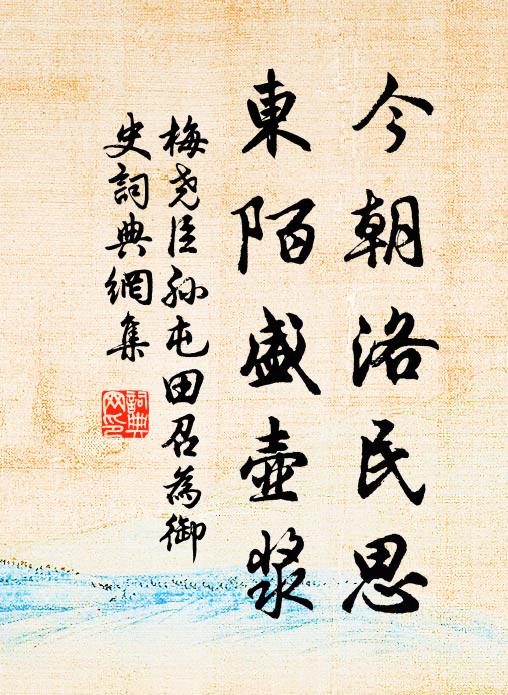 今朝洛民思
東陌盛壺漿
梅堯臣孙屯田召為御
史詞典網集
詞典
网印